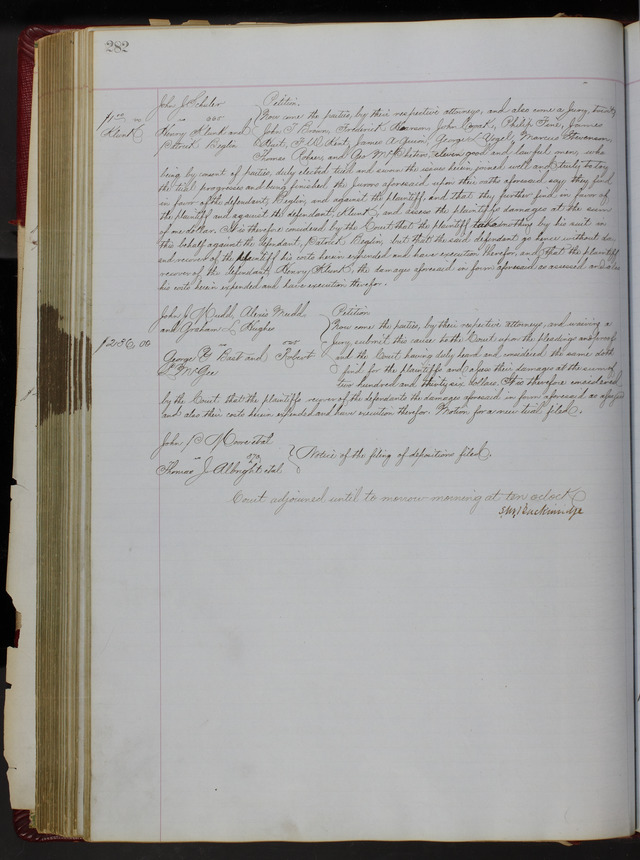 282
John J. Schuler } Petition.
vs
Now come the parties, by their respective attorneys, and also come a Jury, to wit
$1.00
Klunk
Henry Klunk and
Patrick Beglin
John T. Brown, Frederick Harmon, John August, Philip Fine, James
Muit, F. W. Kint, James A. Quinn, George Vogel, Marcus Stevenson,
Thomas Rohrer, and Geo. W. Photon, eleven good and lawful men, who
being by consent of parties, duly elected, tried and sworn the issues herein joined well and truly to try
the trial progresses and being finished, the jurors aforesaid upon their oaths aforesaid say they find
in favor of the defendant, Beglin, and against the plaintiff, and that they further find in favor of
the plaintiff and against the defendant, Klunk, and assess the plaintiffs damages at the sum
of one dollar. It is therefore considered by the Court that the plaintiff take nothing by his suit in
this behalf against the defendant, Patrick Beglin, but that the said defendant go hence without day
and recover of the plaintiff his costs herein expended and have execution therefor, and that the plaintiff
recover of the defendant, Henry Klunk, the damages aforesaid in form aforesaid as assessed and also
his costs herein expended and have execution therefor.
John J. Mudd, Alexis Mudd
and Graham L. Hughes
vs
$236.00
George E. Bast and Robert
L. McGee
Petition
Now come the parties, by their respective attorneys, and waiving a
jury submit this cause to the Court upon the pleadings and proof
and the Court having duly heard and considered the same doth
find for the plaintiffs and assess their damages at the sum of
two hundred and thirty six dollars. It is therefore considered
by the Court that the plaintiffs recover of the defendants the damages aforesaid in form aforesaid as assessed
and also their costs herein expended and have execution therefor. Motion for a new trial filed.
John C. Moore et al
vs
Thomas J. Albright et al } Notice of the filing of depositions filed.
Court adjourned until to morrow morning at ten oclock
S. M. Breckinridge